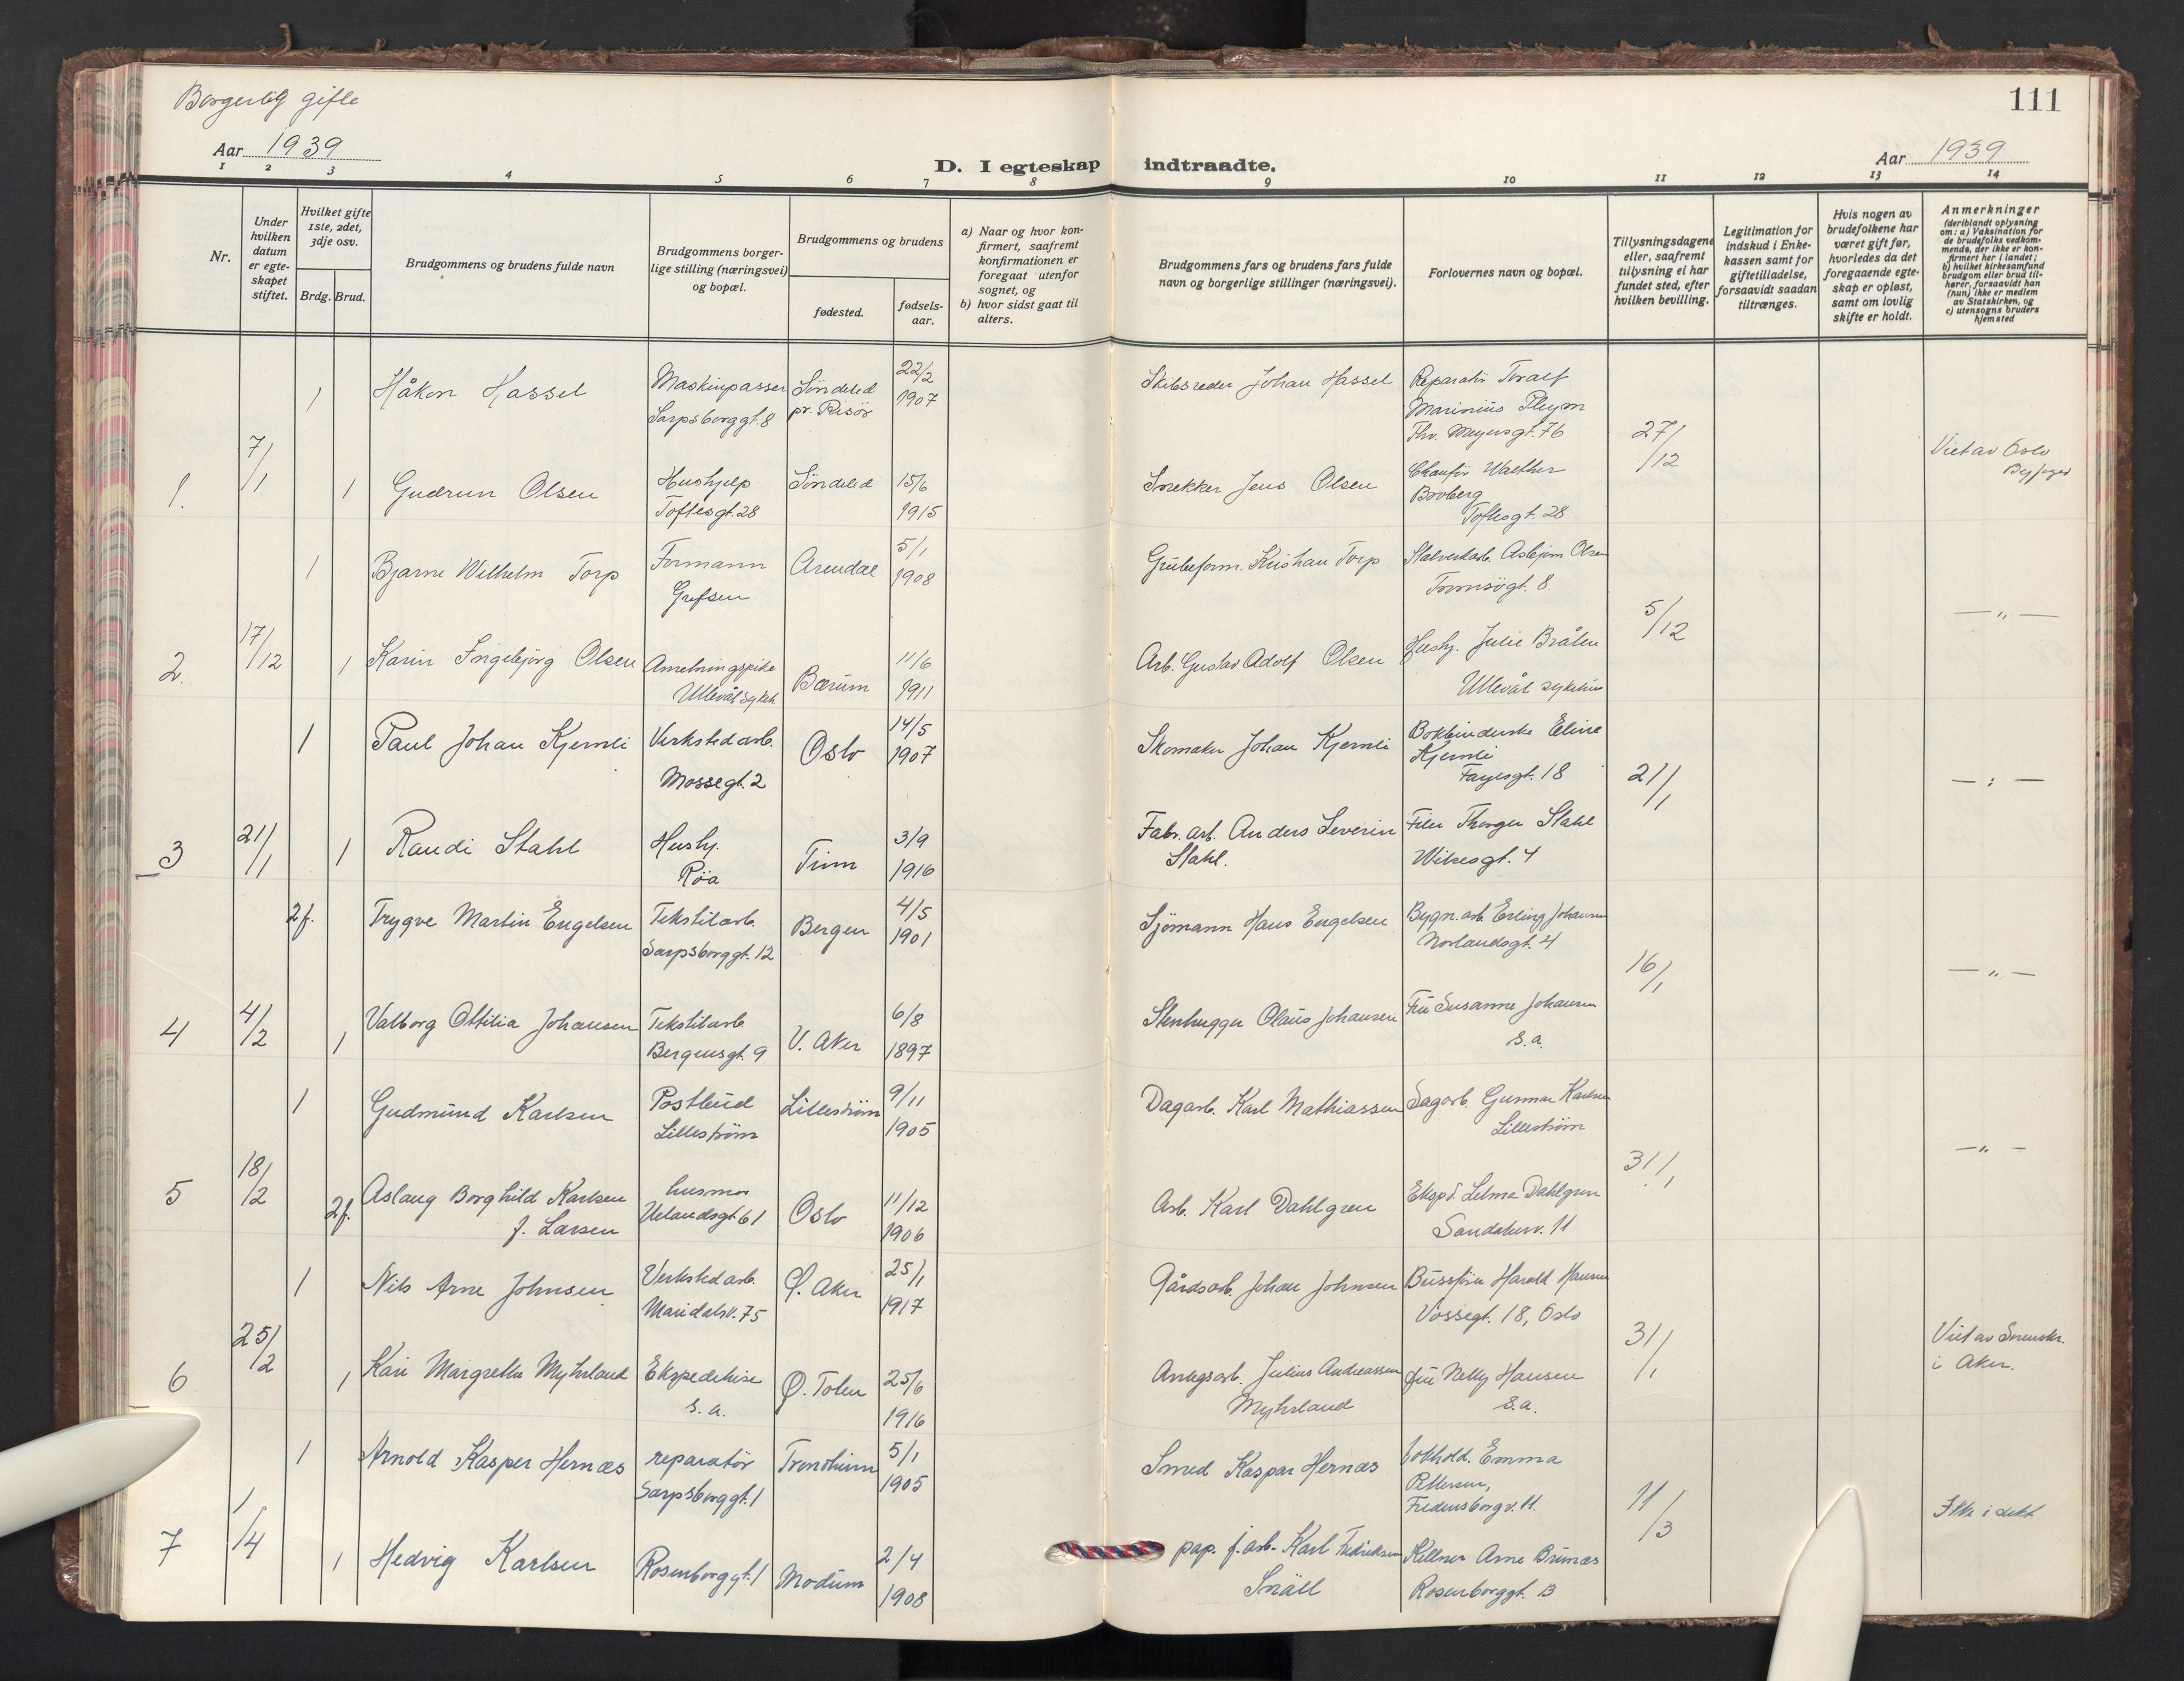 Borgerlig gifte
111
Aar 1939
D. I egteskap indtraadte.
Aar 1939
1 2 3 4 5 6 7 8 9 10 11 12 13 14
Nr.
Under hvilken datum er egteskapet stiftet.
Hvilket gifte 1ste, 2det, 3dje osv.
Brdg. Brud.
Brudgommens og brudens fulde navn
Brudgommens borgerlige stilling (næringsvei) og bopæl.
Brudgommens og brudens
fødested.
fødselsaar.
a) Naar og hvor konfirmert, saafremt konfirmationen er foregaat utenfor sognet, og
b) hvor sidst gaat til alters.
Brudgommens fars og brudens fars fulde navn og borgerlige stillinger (næringsvei).
Forlovernes navn og bopæl.
Tillysningsdagene eller, saafremt tillysning ei har fundet sted, efter hvilken bevilling.
Legitimation for indskud i Enkekassen samt for giftetilladelse, forsaavidt saadan tiltrænges.
Hvis nogen av brudefolkene har været gift før, hvorledes da det foregaaende egteskap er opløst, samt om lovlig skifte er holdt.
Anmerkninger
(deriblandt oplysning om: a) Vaksination for de brudefolks vedkommende, der ikke er konfirmert her i landet;
b) hvilket kirkesamfund brudgom eller brud tilhører, forsaavidt han (hun) ikke er medlem av Statskirken, og
c) utensogns bruders hjemsted
1 Håkon Hassel Maskinpasser Søndeled 22/2 Skibsreder Johan Hassel Reparatør Toralf
Sarpsborggt. 8 pr. Risör 1907 Marinius Pleym
Thv. Meyersgt. 76 27/12
1. 7/1 1 Gudrun Olsen Hushjelp Söndeled 15/6 Snekker Jens Olsen Chauför Walther Viet av Oslo
Toftesgt. 28 1915 Broberg Byfoged
Toftesgt. 28
1 Bjarne Wilhelm Torp Formann Arendal 5/1 Grubeform. Kristian Torp Stalverkarb. Asbjørn Olsen
Grefsen 1908 Tromsögt. 8
2. 17/12 1 Karin Ingebjörg Olsen Anretningspike Bærum 11/6 Arb. Gustav Adolf Olsen Hushj. Julie Bråten 5/12 — „ —
Ullevål sykeh 1911 Ullevål sykehus
1 Paul Johan Kjernli Verksted arb. Oslo 14/5 Skomaker Johan Kjernli Bokbinderske Eline
Mossegt. 2 1907 Kjernli
Fayesgt. 18 21/1 — „ —
3 21/1 1 Randi Stahl Hushj. Tinn 3/9 Fabr. arb. Anders Severin Filer Thorger Stahl
Røa 1916 Stahl. Wilsesgt. 4
2f. Trygve Martin Engelsen Tekstilarb. Bergen 4/5 Sjömann Hans Engelsen Bygn. arb. Erling Johansen
Sarpsborggt. 12 1901 Norlandsgt. 4
16/1 — „ —
4 4/2 1 Valborg Ottilia Johansen Tekstilarb. V. Aker 6/8 Stenhugger Olaüs Johansen Frü Susanne Johansen
Bergensgt. 9 1897 s. a.
1 Gudmünd Karlsen Postbüd Lilleström 9/11 Dagarb. Karl Mathiassen Sagarb. Gunnar Karlsen
Lilleström 1905 Lilleström
31/1 — „ —
5 18/2 2f. Aslaug Borghild Karlsen husmor Oslo 11/12 Arb. Karl Dahlgren Eksp. Dahlgren
f. Larsen Uelandsgt. 61 1906 Sandakerv. 11
1 Nils Arne Johnsen Verksted arb. Ø. Aker 25/1 Gårdsarb. Johan Johnsen Büssför Harald Hansen
Maridalsv. 75 1917 Vossegt. 18, Oslo
6 25/2 1 Kari Margrethe Myhrland Ekspeditrise Ø. Toten 25/6 Anlegsarb. Julius Andreassen Frü Nelly Hansen 31/1 Viet av Sorenskr.
s. a. 1916 Myhrland s. a. i Aker.
1 Arnold Kasper Hernæs reparatör Trondheim 5/1 Smed Kaspar Hernæs bokhold. Emma
Sarpsborggt. 1 1905 Pettersen,
Fredensborgv. 11. 11/3
7 1/4 1 Hedvig Karlsen Rosenborggt. 1 Modum 2/4 pap. f. arb. Karl Fredriksen Kellner Arne Brunæs Ikke i dekt
1908 Snäll Rosenborggt. 13